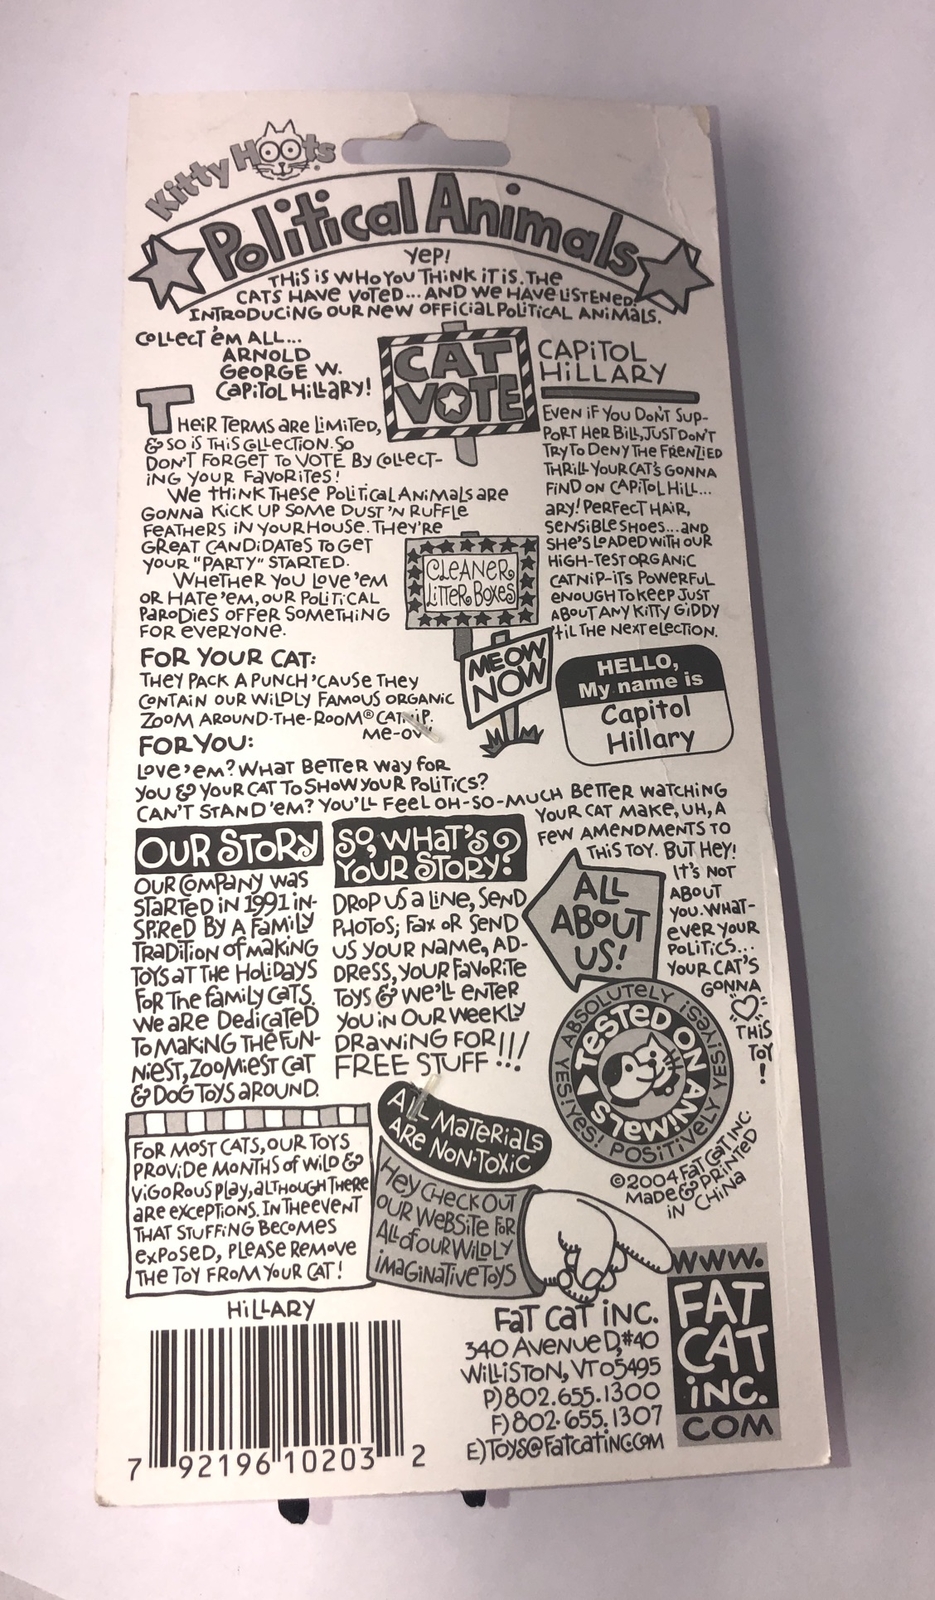 Kitty Hoots®
Political Animals
YEP!
THIS IS WHO YOU THINK IT IS. THE
CATS HAVE VOTED... AND WE HAVE LISTENED!
INTRODUCING OUR NEW OFFICIAL POLITICAL ANIMALS.
COLLECT 'EM ALL...
ARNOLD
GEORGE W.
CAPITOL HILLARY!
THEIR TERMS ARE LIMITED,
& SO IS THIS COLLECTION. SO
DON'T FORGET TO VOTE BY COLLECT-
ING YOUR FAVORITES!
WE THINK THESE POLITICAL ANIMALS ARE
GONNA KICK UP SOME DUST 'N RUFFLE
FEATHERS IN YOUR HOUSE. THEY'RE
GREAT CANDIDATES TO GET
YOUR "PARTY" STARTED.
WHETHER YOU LOVE 'EM
OR HATE 'EM, OUR POLITICAL
PARODIES OFFER SOMETHING
FOR EVERYONE.
CAT
VOTE
CLEANER
LITTER BOXES
MEOW
NOW
CAPITOL
HILLARY
EVEN IF YOU DON'T SUP-
PORT HER BILL, JUST DON'T
TRY TO DENY THE FRENZIED
THRILL YOUR CAT'S GONNA
FIND ON CAPITOL HILL...
ARY! PERFECT HAIR,
SENSIBLE SHOES...AND
SHE'S LOADED WITH OUR
HIGH-TEST ORGANIC
CATNIP-ITS POWERFUL
ENOUGH TO KEEP JUST
ABOUT ANY KITTY GIDDY
'TIL THE NEXT ELECTION.
HELLO,
My name is
Capitol
Hillary
FOR YOUR CAT:
THEY PACK A PUNCH 'CAUSE THEY
CONTAIN OUR WILDLY FAMOUS ORGANIC
ZOOM AROUND-THE-ROOM® CATNIP.
ME-OW
FOR YOU:
LOVE 'EM? WHAT BETTER WAY FOR
YOU & YOUR CAT TO SHOW YOUR POLITICS?
CAN'T STAND 'EM? YOU'LL FEEL OH-SO-MUCH BETTER WATCHING
YOUR CAT MAKE, UH, A
FEW AMENDMENTS TO
THIS TOY. BUT HEY!
IT'S NOT
ABOUT
YOU. WHAT-
EVER YOUR
POLITICS...
YOUR CAT'S
GONNA
THIS
TOY
!
OUR STORY
OUR COMPANY WAS
STARTED IN 1991 IN-
SPIRED BY A FAMILY
TRADITION OF MAKING
TOYS AT THE HOLIDAYS
FOR THE FAMILY CATS.
WE ARE DEDICATED
TO MAKING THE FUN-
NIEST, ZOOMIEST CAT
& DOG TOYS AROUND.
SO, WHAT'S
YOUR STORY?
DROP US A LINE, SEND
PHOTOS; FAX OR SEND
US YOUR NAME, AD-
DRESS, YOUR FAVORITE
TOYS & WE'LL ENTER
YOU IN OUR WEEKLY
DRAWING FOR
FREE STUFF!!!
ALL
ABOUT
US!
ABSOLUTELY YES! YES! POSITIVELY YES! YES! YES!
TESTED ON ANIMALS
©2004 FAT CAT INC.
MADE & PRINTED
IN CHINA
FOR MOST CATS, OUR TOYS
PROVIDE MONTHS OF WILD &
VIGOROUS PLAY, ALTHOUGH THERE
ARE EXCEPTIONS. IN THE EVENT
THAT STUFFING BECOMES
EXPOSED, PLEASE REMOVE
THE TOY FROM YOUR CAT!
ALL MATERIALS
ARE NON-TOXIC
HEY CHECK OUT
OUR WEBSITE FOR
ALL OF OUR WILDLY
IMAGINATIVE TOYS
WWW.
FAT
CAT
INC.
COM
HILLARY
7 92196 10203 2
FAT CAT INC.
340 AVENUE D, #40
WILLISTON, VT 05495
P) 802.655.1300
F) 802.655.1307
E) TOYS@FATCATINC.COM